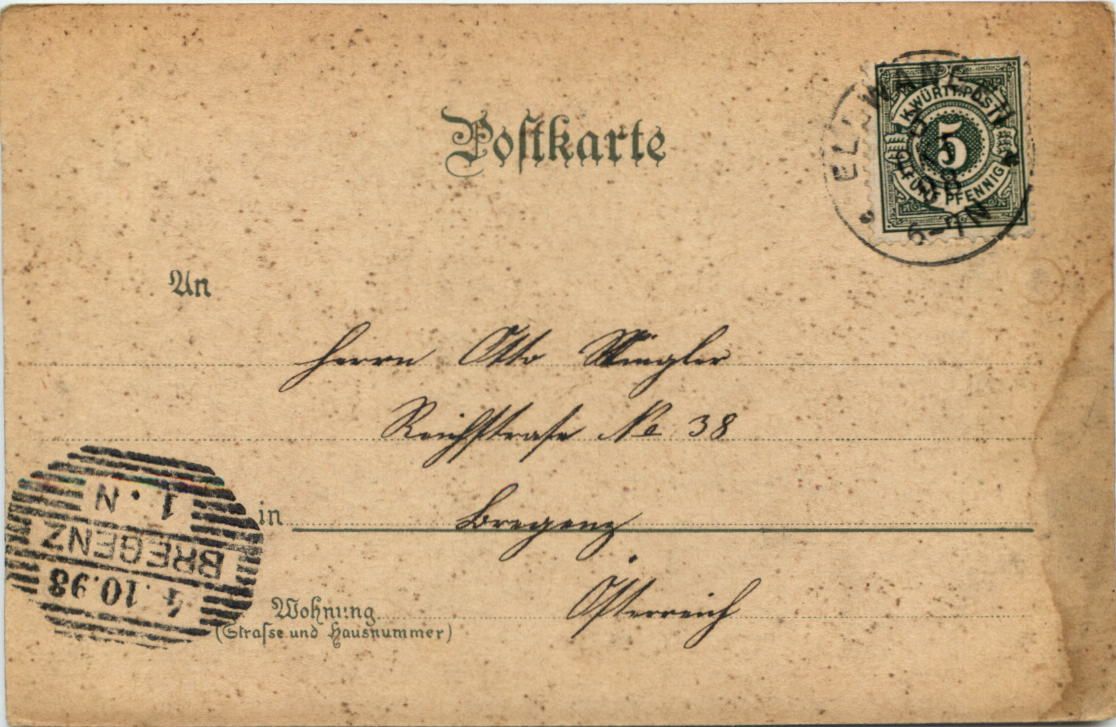 Postkarte
ELLWANGEN
K. WÜRTT. POST
5
FÜNF PFENNIG
98
6-7 N
An
Herrn Otto Mingler
Reichstraße No 38
in Bregenz
Österreich
Wohnung
(Strasse und Hausnummer)
4.10.98
BREGENZ
1. N